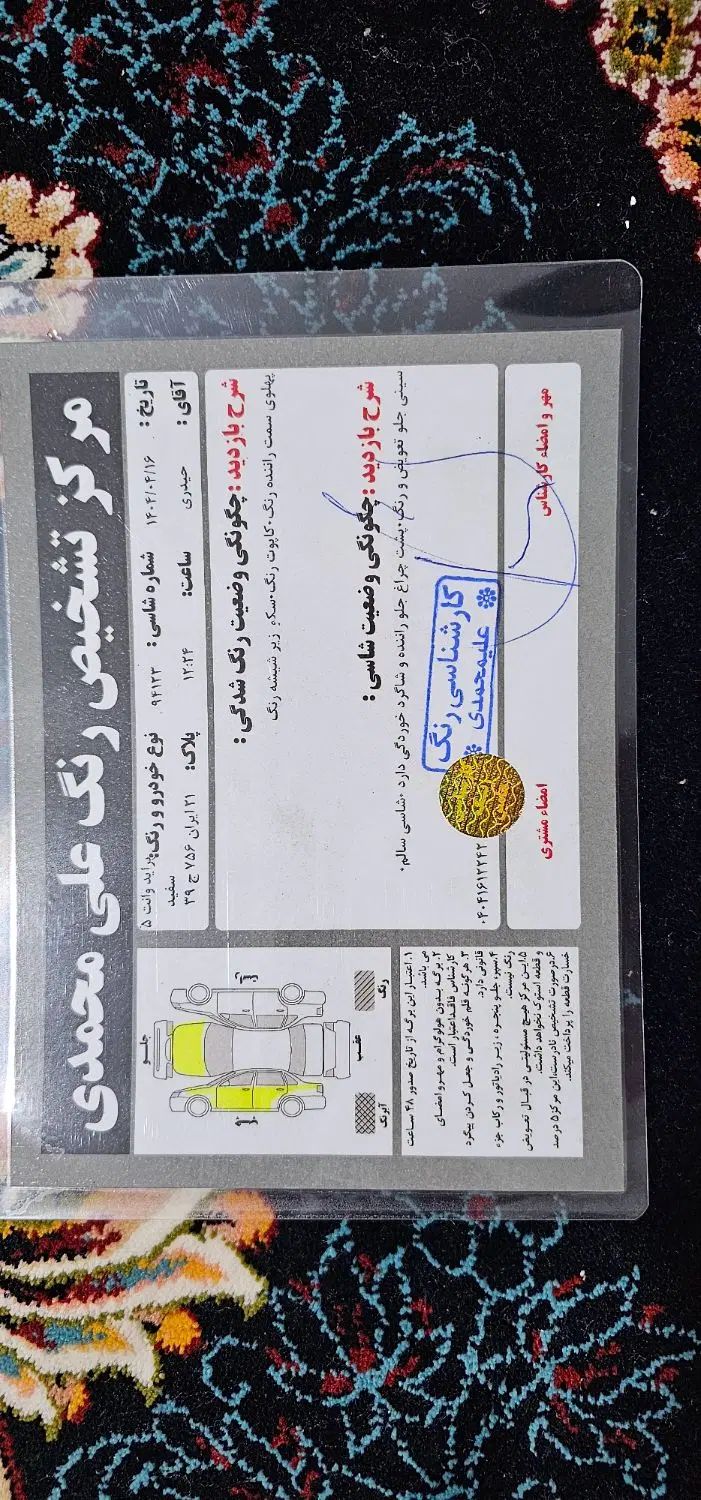 مرکز تشخیص رنگ علی محمدی
تاریخ : ۱۴۰۴/۰۴/۱۶ شماره شاسی : ۹۴۱۲۳ نوع خودرو و رنگ: پراید وانت ۵
سفید
آقای : حیدری ساعت: ۱۲:۲۴ پلاک: ۲۱ ایران ۷۵۶ ج ۳۹
شرح بازدید : چگونگی وضعیت رنگ شدگی :
پهلوی سمت راننده رنگ۰کاپوت رنگ۰سکه زیر شیشه رنگ
شرح بازدید : چگونگی وضعیت شاسی :
سینی جلو تعویض و رنگ۰پشت چراغ جلو راننده و شاگرد خوردگی دارد ۰شاسی سالم۰
کارشناسی رنگ
علیمحمدی
۰۴۰۴۱۶۱۲۲۴۲
مهر و امضاء کارشناس
امضاء مشتری
جلو
عقب
رنگ
آبرنگ
۱. اعتبار این برگه از تاریخ صدور ۴۸ ساعت
می باشد.
۲. برگه بدون هولوگرام و مهر و امضای
کارشناس فاقد اعتبار است.
۳. هرگونه قلم خوردگی و جعل کردن پیگرد
قانونی دارد.
۴. سپر، جلو پنجره ، زیر رادیاتور و رکاب جزء
رنگ نیست.
۵.این مرکز هیچ مسئولیتی در قبال تعویض
و قطعه استوک نخواهد داشت.
۶.درصورت تشخیص نادرست،این مرکز ۵ درصد
خسارت قطعه را پرداخت میکند.